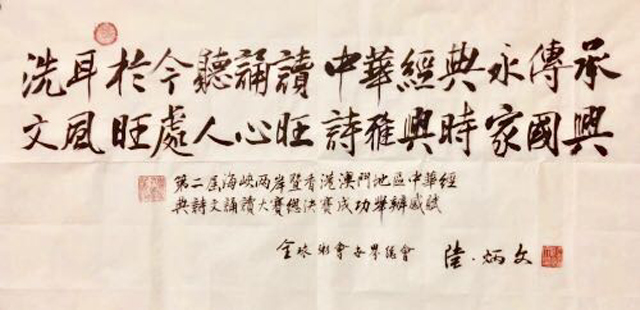 洗耳於今聽誦讀 中華經典永傳承
文風旺處人心旺 詩雅興時家國興
第二屆海峽两岸暨香港澳門地區中華經
典詩文誦讀大賽總决賽成功舉辦感賦
全球 會 界總會 陸·炳文